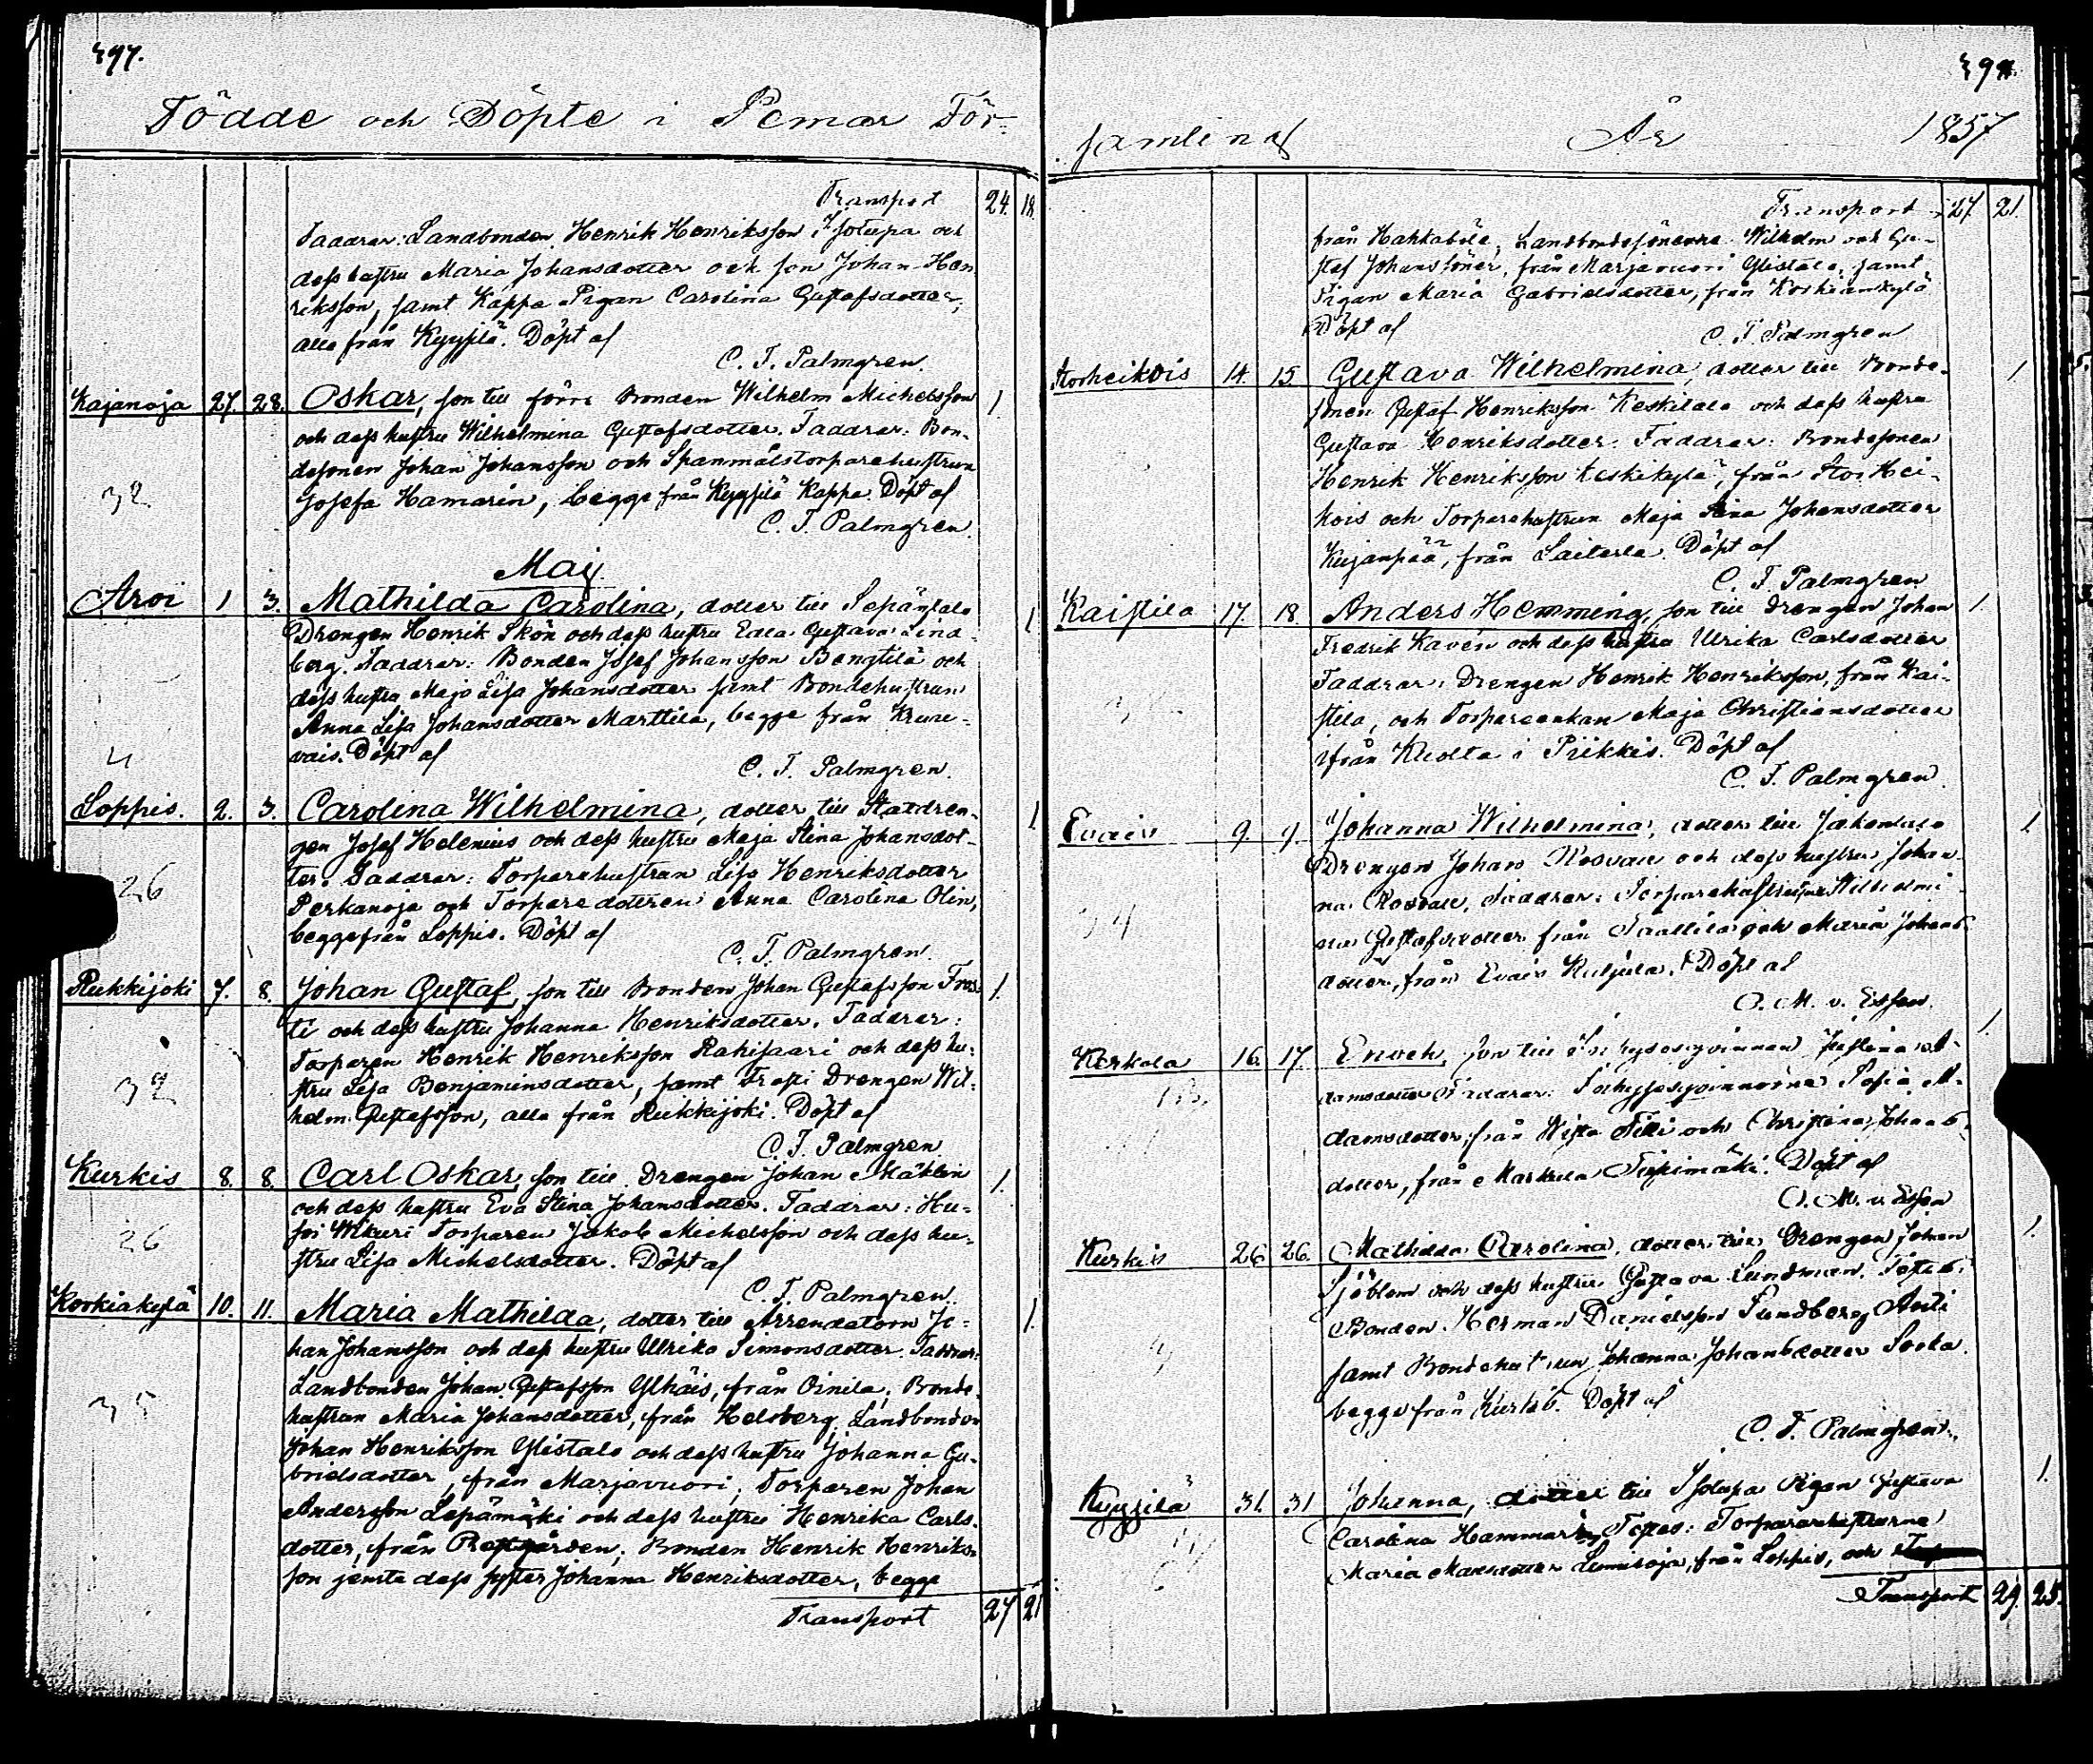 497.
Födde och Döpte i Pemar För-
Transport 24. 18.
Faddrar: Landbonden Henrik Henriksson Isotupa och
dess hustru Maria Johansdotter och son Johan Hen
riksson, samt Kappa Pigan Carolina Gustafsdotter,
alla från Kyysilä. Döpt af
C. F. Palmgren.
Kajanoja 27. 28. Oskar, son till förre Bonden Wilhelm Michelsson 1.
och dess hustru Wilhelmina Gustafsdotter. Faddrar: Bon-
desonen Johan Johansson och Spanmålstorparehustrun
32 Josefa Hamarin, begge från Kyysilä Kappa. Döpt af
C. F. Palmgren.
Maij
Aroi 1 3. Mathilda Carolina, dotter till Sepänsalo 1
Drengen Henrik Skön och dess hustru Edla Gustava Lind-
berg. Faddrar: Bonden Josef Johansson Bengtilä och
dess hustru Maja Lisa Johansdotter samt Bondehustrun
Anna Lisa Johansdotter Marttila, begge från Kruse-
4 vais. Döpt af
C. F. Palmgren.
Loppis. 2. 3. Carolina Wilhelmina, dotter till Statdren- 1.
gen Josef Helenius och dess hustru Maja Stina Johansdot-
26 ter. Faddrar: Torparehustrun Lisa Henriksdotter
Perkanoja och Torparedottren Anna Carolina Olin,
begge från Loppis. Döpt af
C. F. Palmgren.
Rukkijoki 7. 8. Johan Gustaf, son till Bonden Johan Gustafsson Fros- 1.
ti och dess hustru Johanna Henriksdotter. Faddrar:
Torparen Henrik Henriksson Rahisaari och dess hu-
32 stru Lisa Benjaminsdotter, samt Frosti Drengen Wil-
helm Gustafsson, alla från Rukkijoki. Döpt af
C. F. Palmgren
Kurkis 8. 8. Carl Oskar, son till Drengen Johan Mählin 1.
och dess hustru Eva Stina Johansdotter. Faddrar: Hu-
26 Torparen Jakob Michelsson och dess hu-
stru Lisa Michelsdotter. Döpt af
C. F. Palmgren.
Korkiakylä 10. 11. Maria Mathilda, dotter till Arrendatorn Jo- 1.
han Johansson och dess hustru Ulrika Simonsdotter. Faddrar:
Landbonden Johan Gustafsson Ylhäis, från Oinila, Bonde-
35 hustrun Maria Johansdotter, från Helsberg, Landbonden
Johan Henriksson Ylistalo och dess hustru Johanna Ga-
brielsdotter, från Marjavuori, Torparen Johan
Andersson Lepämäki och dess hustru Henrika Carls-
dotter, från Bonden Henrik Henriks-
son jemte dess syster Johanna Henriksdotter, begge
Transport 27 21
samlinas År 1857
Transport 27. 21.
från Hakkaböle, Landbondesönerne Wilhelm och Gu-
staf Johanssöner, från Marjavuori Ylistalo, samt
Pigan Maria Gabrielsdotter, från Korkiankylä
Döpt af
C. F. Palmgren
Storheikois 14. 15 Gustava Wilhelmina, dotter till Bonde- 1.
sonen Gustaf Henriksson Keskitalo och dess hustru
Gustava Henriksdotter. Faddrar: Bondesonen
Henrik Henriksson Keskikylä, från Stor Hei-
kois och Torparehustrun Maja Stina Johansdotter
Kujanpää, från Saitarla. Döpt af
C. F. Palmgren
Kaistila 17. 18. Anders Hemming, son till Drengen Johan 1.
Fredrik Kavén och dess hustru Ulrika Carlsdotter
Faddrar: Drengen Henrik Henriksson, från Kai-
stila, och Torpareenkan Maja Christiansdotter
ifrån Kuolta i Piikkis. Döpt af
C. F. Palmgren.
Evais 9 9. Johanna Wilhelmina, dotter till Jakontalo 1.
Drengen Johan Rosvall och dess hustru Johan-
na Rosvall, Faddrar: Torparehustrun Wilhelmi-
34 na Gustafsdotter från och Maria Johans-
dotter, från Evais Döpt af
O. M. v. Essen.
Kerkola 16. 17. Enoch, son till Inhysesqvinnan Justina A- 1.
damsdotter Faddrar: Inhysesqvinnorna Sofia A-
damsdotter, från Wista Tilli och Christina Johans-
dotter, från Markula Döpt af
O. M. v. Essen
Kurkis 26 26. Mathilda Carolina, dotter till Drengen Johan 1.
Sjöblom och dess hustru Gustava Lundman. Testes:
Bonden Herman Danielsson Sundberg Anti
samt Bondehustrun Johanna Johansdotter
begge från Kurkis. Döpt af
C. F. Palmgren.
Kyysilä 31. 31 Johanna, dotter till Isotupa Pigan Gustava 1.
Carolina Hammarin, Testes: Torparehustrurne
Maria Matsdotter från Loppis, och
Transport 29. 25.